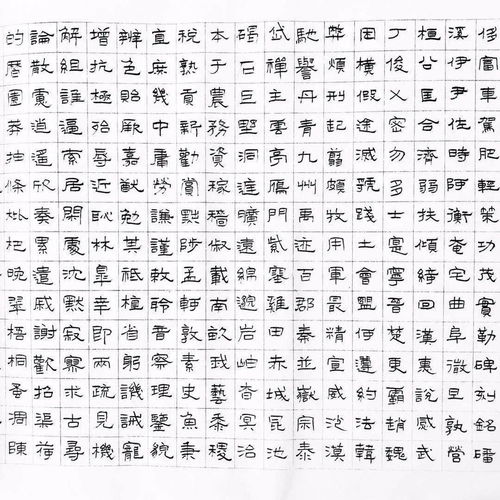 侈富車駕肥輕策功茂實勒碑刻銘磻
溪伊尹佐時阿衡奄宅曲阜微旦孰營
桓公匡合濟弱扶傾綺回漢惠說感武
丁俊乂密勿多士寔寧晉楚更霸趙魏
困橫假途滅虢踐土會盟何遵約法韓
弊煩刑起翦頗牧用軍最精宣威沙漠
馳譽丹青九州禹跡百郡秦並嶽宗泰
岱禪主雲亭鴈門紫塞雞田赤城昆池
碣石巨野洞庭曠遠綿邈岩岫杳冥治
本于農務資稼穡俶載南畝我藝黍稷
稅熟貢新勸賞黜陟孟軻敦素史魚秉
直庶幾中庸勞謙謹敕聆音察理鑒貌
辨色貽厥嘉猷勉其祗植省躬譏誡寵
增抗極殆辱近恥林皋幸即兩疏見機
解組誰逼索居閑處沈默寂寥求古尋
論散慮逍遙欣奏累遣慼謝歡招渠荷
的曆園莽抽條枇杷晚翠梧桐蚤凋陳